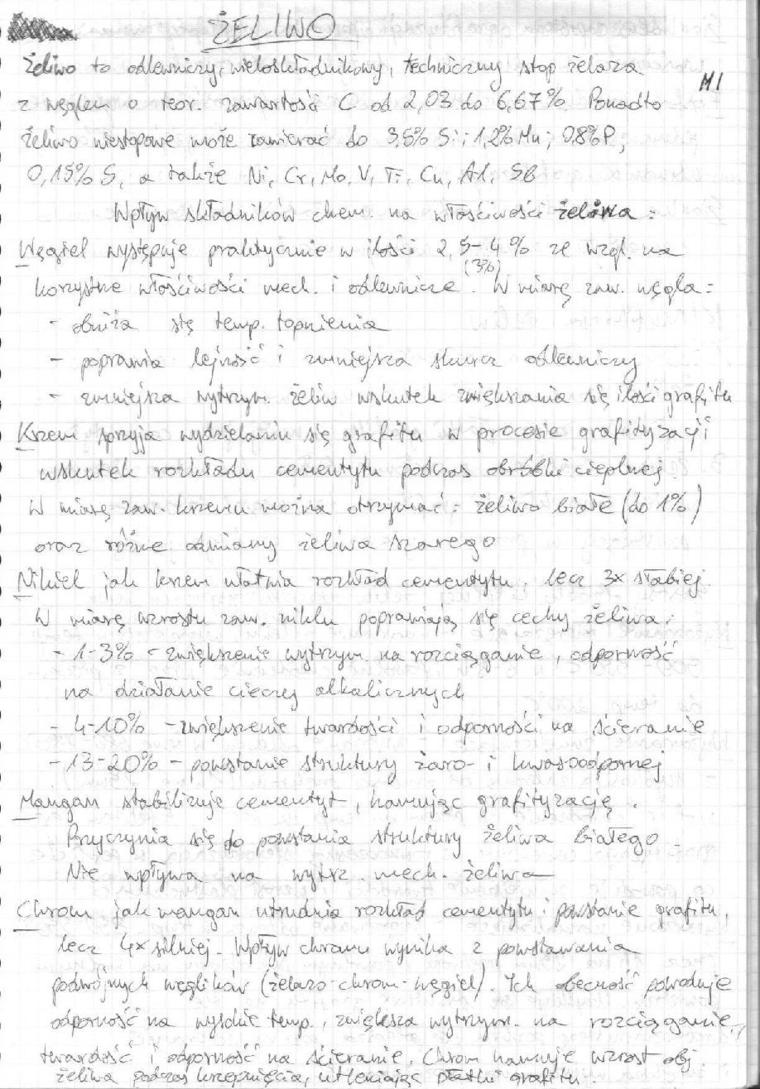 ŻELIWO
M1
Żeliwo to odlewniczy, wieloskładnikowy, techniczny stop żelaza
z węglem o teor. zawartości C od 2,03 do 6,67%. Ponadto
żeliwo niestopowe może zawierać do 3,5% Si; 1,2% Mn; 0,8% P;
0,15% S, a także Ni, Cr, Mo, V, Ti, Cu, Al, SB
Wpływ składników chem. na właściwości żeliwa:
Węgiel występuje praktycznie w ilości 2,5-4% ze wzgl. na
(3%)
korzystne właściwości mech. i odlewnicze. W miarę zaw. węgla:
- obniża się temp. topnienia
- poprawia lejność i zmniejsza skurcz odlewniczy
- zmniejsza wytrzym. żeliw wskutek zwiększania się ilości grafitu
Krzem sprzyja wydzielaniu się grafitu w procesie grafityzacji
wskutek rozkładu cementytu podczas obróbki cieplnej
W miarę zaw. krzemu można otrzymać: żeliwo białe (do 1%)
oraz różne odmiany żeliwa szarego
Nikiel jak krzem ułatwia rozkład cementytu, lecz 3x słabiej.
W miarę wzrostu zaw. niklu poprawiają się cechy żeliwa:
- 1-3% - zwiększenie wytrzym. na rozciąganie, odporność
na działanie cieczy alkalicznych
- 4-10% - zwiększenie twardości i odporności na ścieranie
- 13-20% - powstanie struktury żaro- i kwasoodpornej
Mangan stabilizuje cementyt, hamując grafityzację.
Przyczynia się do powstania struktury żeliwa białego.
Nie wpływa na wytrz. mech. żeliwa
Chrom jak mangan utrudnia rozkład cementytu i powstanie grafitu,
lecz 4x silniej. Wpływ chromu wynika z powstawania
podwójnych węglików (żelazo-chrom-węgiel). Ich obecność powoduje
odporność na wysokie temp., zwiększa wytrzym. na rozciąganie,
twardość i odporność na ścieranie. Chrom hamuje wzrost obj.
żeliwa podczas krzepnięcia, utleniając płatki grafitu.